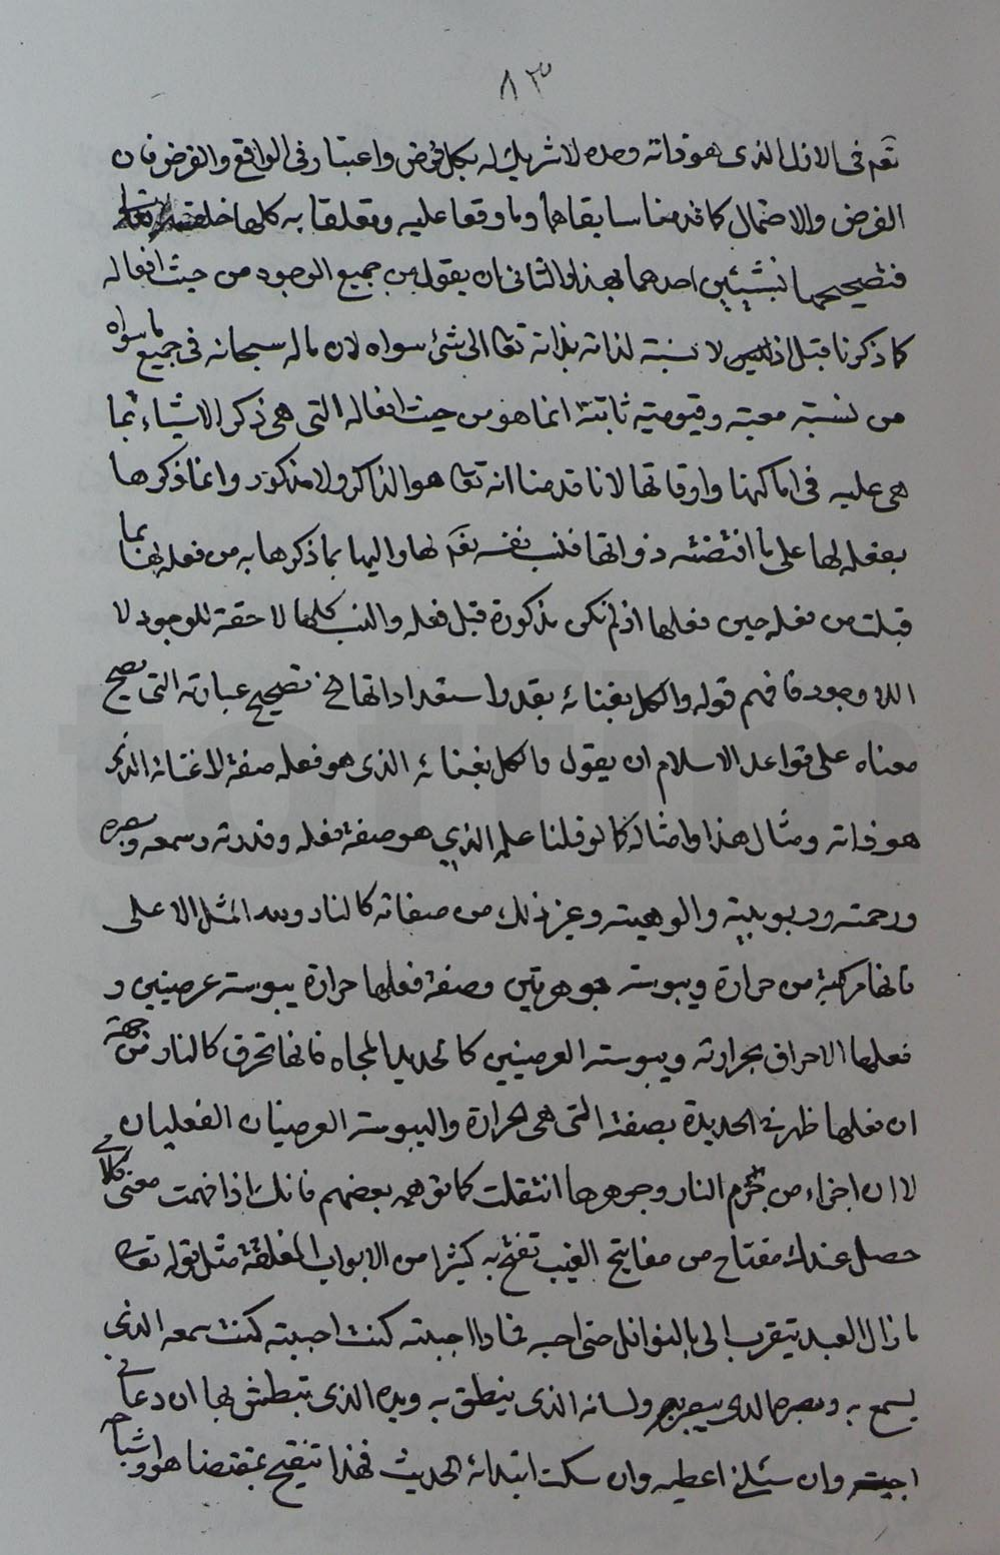 ٨٣
تعم فى الازل الذى هو ذاته وحده لا شريك له بكل فرض واعتبار فى الواقع والفرض فان
الفرض والاحتمال كما قدمنا سابقا هما وما وقعا عليه وتعلقا به كلها خلقه
فتصحيحها بشيئين احدهما بهذا والثانى ان يقول من جميع الوجود من حيث افعاله
كما ذكرنا قبل اذ ليس لا نسبة لذاته بذاته تعا الى شئ سواه لان ما له سبحانه فى جميع ما سواه
من نسبة معيته وقيوميته ثابتة انما هو من حيث افعاله التى هى ذكر الاشياء بما
هى عليه فى اماكنها واوقاتها لانا قدمنا انه تعا هو الذاكر ولا مذكور وانما ذكرها
بفعله لها على ما اقتضته ذواتها فنسب نفسه تعم لها واليها بما ذكرها به من فعله لها بما
قبلت من فعله حين فعلها اذ لم تكن مذكورة قبل فعله والنسب كلها لاحقة للوجود لا
اللا وجود فافهم قوله والكل بغنائه بقدر استعداداتها فى تصحيح عبارته التى يصح
معناه على قواعد الاسلام ان يقول والكل بغنائه الذى هو فعله صفة لا غنائه الذى
هو ذاته ومثال هذا وامثاله كما لو قلنا علمه الذي هو صفة فعله وقدرته وسمعه وبصره
ورحمته وربوبيته والوهيته وغير ذلك من صفاته كالنار ولله المثل الاعلى
فانها مركبة من حرارة ويبوسة جوهريتين وصفة فعلها حرارة يبوسة عرضيتين و
فعلها الاحراق بحرارته ويبوسته العرضيتين كالحديدة المحماه فانها تحرق كالنار من جهة
ان فعلها ظهر فى الحديدة بصفته التى هى الحرارة واليبوسة العرضيتان الفعليتان
لا ان اجزاء من جرم النار وجوهرها انتقلت كما توهمه بعضهم فانك اذا فهمت معنى كلامى
حصل عندك مفتاح من مفاتيح الغيب تفتح به كثيرا من الابواب المغلقة مثل قوله تعا
ما زال العبد يتقرب الى بالنوافل حتى احبه فاذا احببته كنت احببته كنت سمعه الذى
يسمع به وبصره الذى يبصر به ولسانه الذى ينطق به ويده الذى يبطش بها ان دعانى
اجبته وان سئلنى اعطيه وان سكت ابتدأته الحديث فهذا تنقيح بمقتضا هو واشباهه